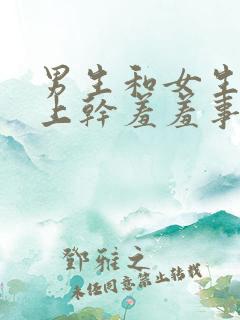 男生和女生
上幹羞羞事
鄧雅之
未經同意禁止轉載